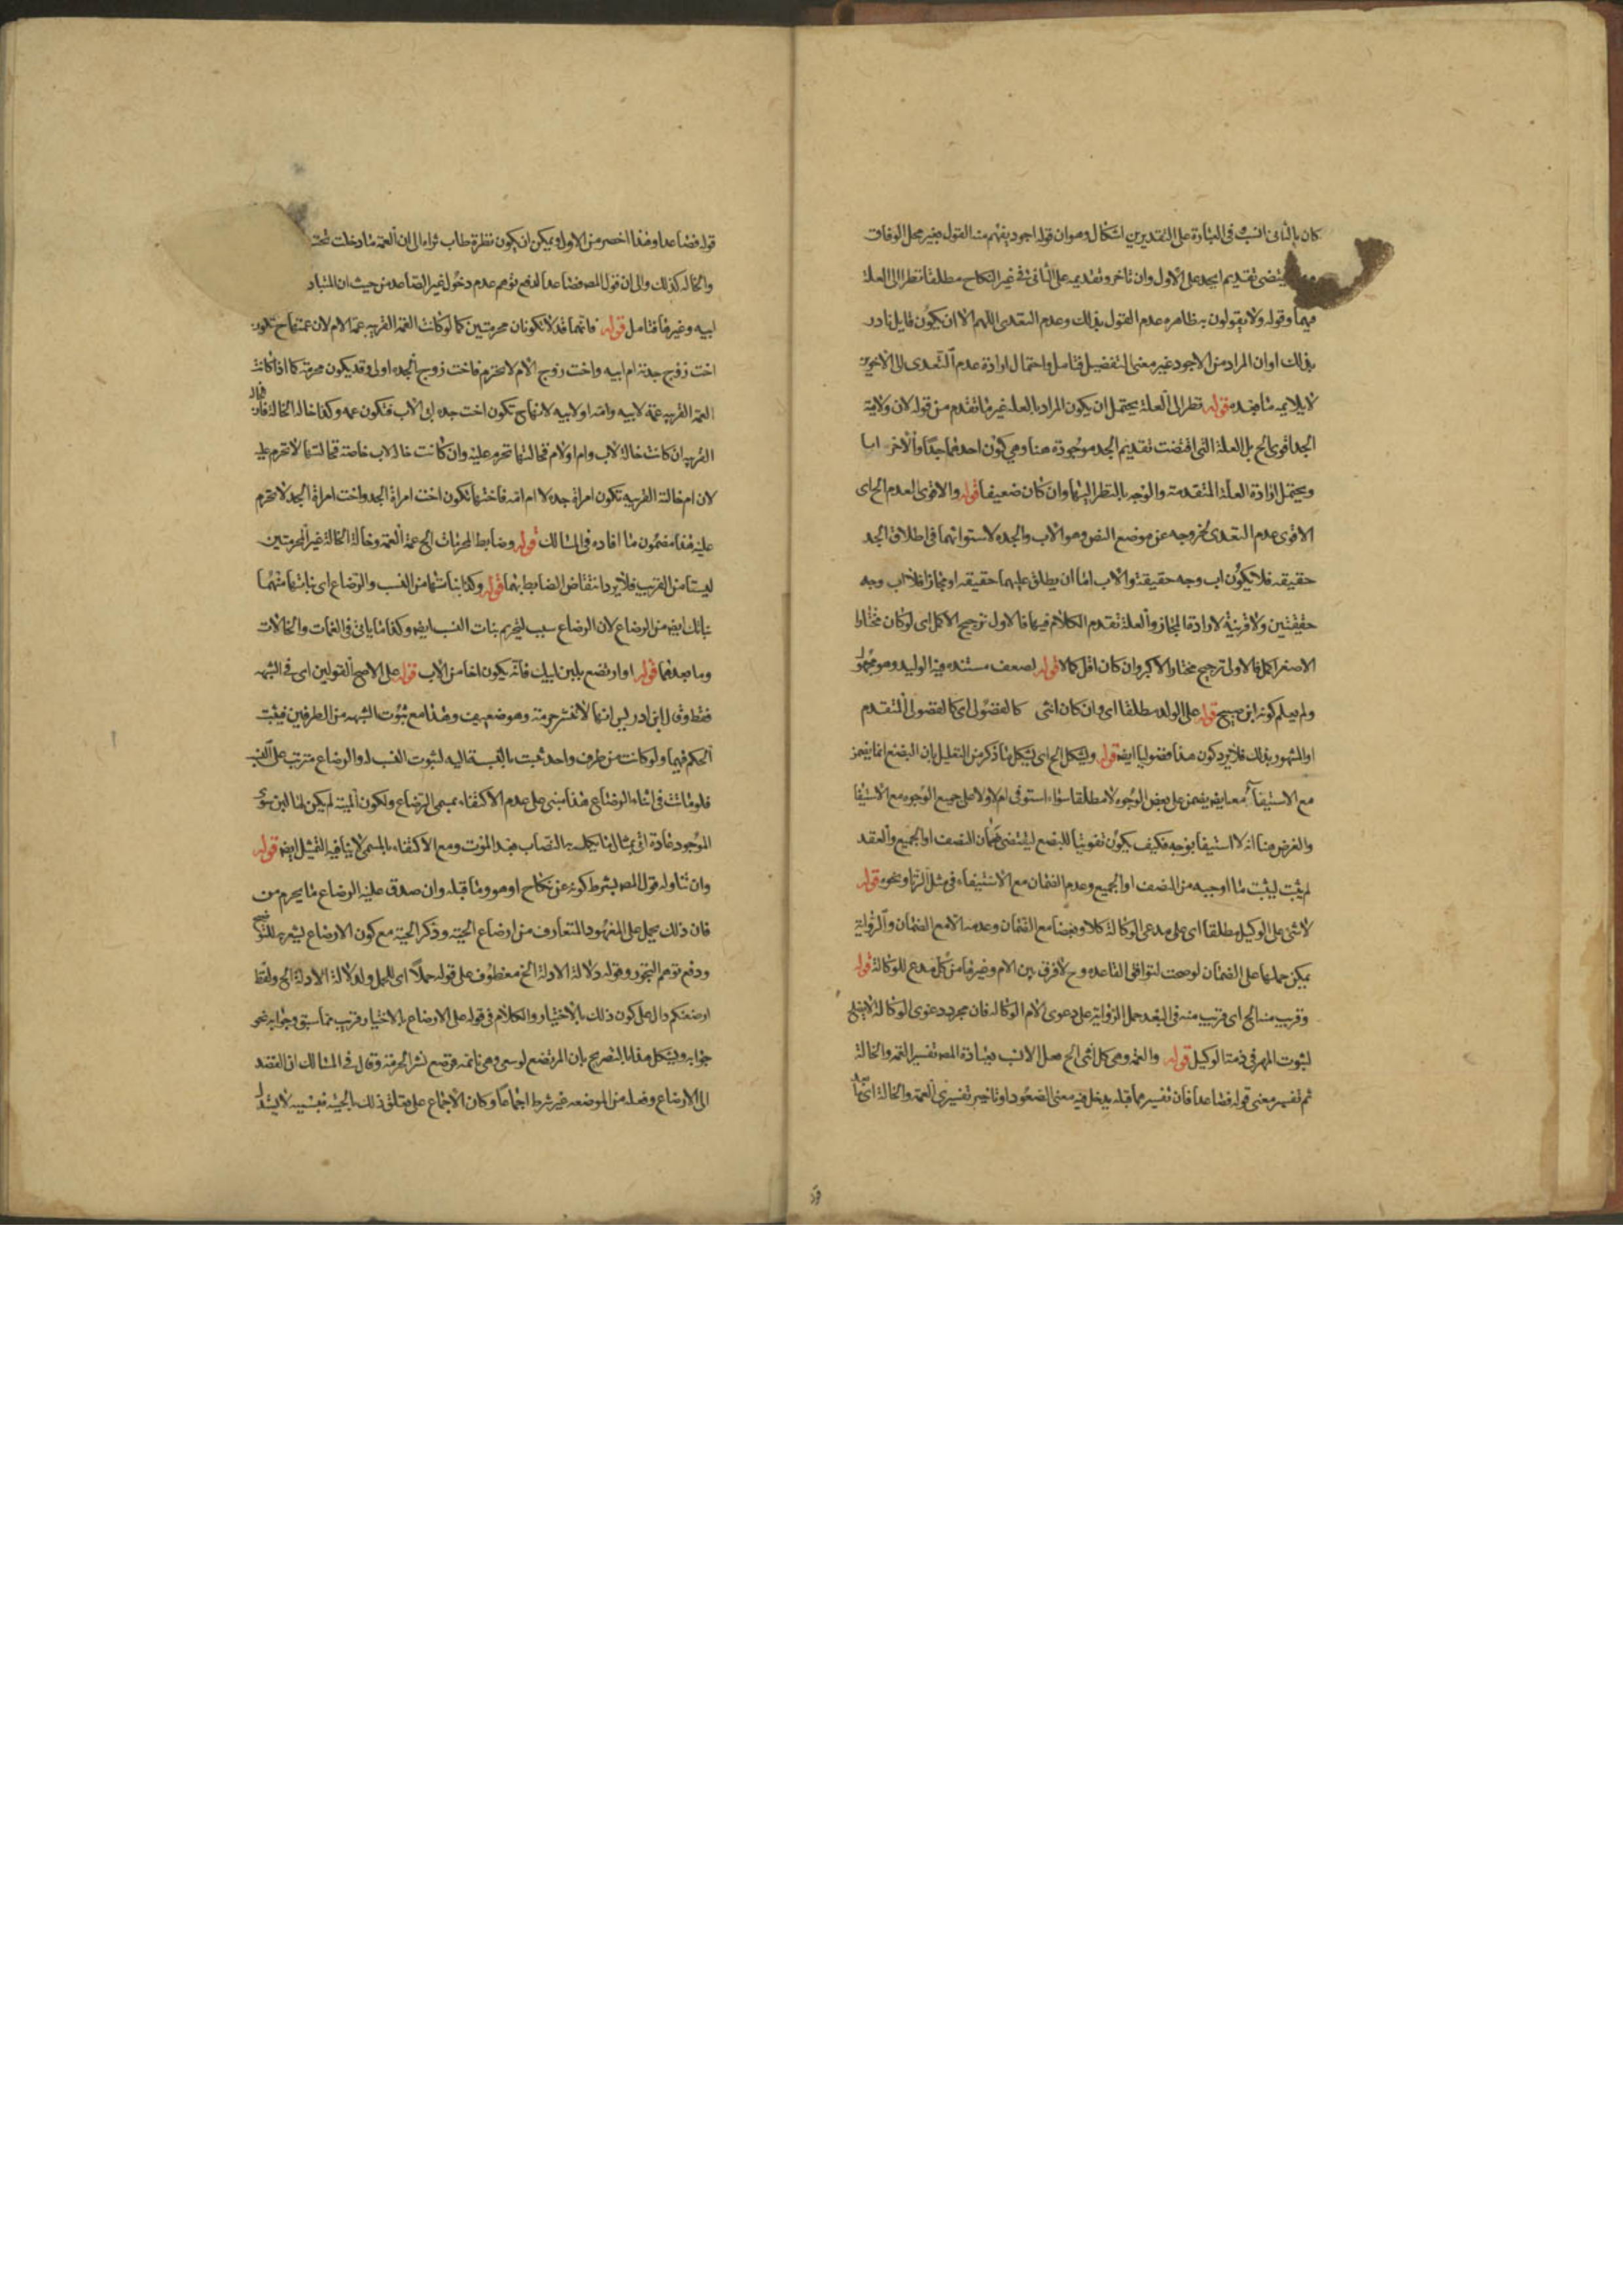 كان بالثانى انسب فى العبارة على التقديرين اشكال وهو ان قوله اجود يفهم منه القول بغير محل الوفاق
يقتضى تقديم الجد على الاول وان تاخر وتقديمه على الثانى فى غير النكاح مطلقا نظرا الى العلة
فيهما وقوله ولا يقولون به ظاهره عدم القول بذلك وعدم التعدى اللهم الا ان يكون قايل نادر
بذلك او ان المراد من الاجود غير معنى التفضيل فتامل واحتمال ارادة عدم التعدى الى الاخرى
لا يلايمه ما بعده قوله نظرا الى العلة يحتمل ان يكون المراد بالعلة غير ما تقدم من قوله لان ولاية
الجد اقوى الخ بل العلة التى اقتضت تقديم الجد موجودة هنا وهى كون احدهما جدا والاخر ابا
ويحتمل ارادة العلة المتقدمة والوجه بالنظر اليها وان كان ضعيفا قوله والاقوى العدم الخ اى
الاقوى عدم التعدى لخروجه عن موضع النص وهو الاب والجد لاستوائهما فى اطلاق الجد
حقيقه فلا يكون اب وجد حقيقة والاب اما ان يطلق عليهما حقيقه او مجازا فلا اب وجد
حقيقتين ولا قرينة لارادة المجاز والعلة تقدم الكلام فيها فالاول ترجيح الاكمل اى لو كان مختار
الاصغر اكمل فالاولى ترجيح مختار الاكبر وان كان اقل كمالا قوله لضعف مستنده فيه الوليد وهو مجهول
ولم يعلم كونه ابن صبيح قوله على الولد مطلقا اى وان كان انثى كالفضولى اى كالفضولى المتقدم
او المشهور بذلك فلا يرد كون هذا فضوليا ايضا قوله ويشكل الخ اى يشكل ما ذكر من التعليل بان البضع انما يضمن
مع الاستيفاء معا يضمن على بعض الوجوه لا مطلقا سواء استوفى ام لا ولا على جميع الوجوه مع الاستيفا
والفرض هنا انه لا استيفا بوجه فكيف يكون تفويتا للبضع ليقتضى ضمان النصف او الجميع والعقد
لم يثبت ليثبت ما اوجبه من النصف او الجميع وعدم الضمان مع الاستيفاء فى مثل الزنا ونحوه قوله
لا شى على الوكيل مطلقا اى على مدعى الوكالة كلا وبعضا مع الضمان وعدمه الا مع الضمان والرواية
يمكن حملها على الضمان لو صحت لتوافق القاعده وح لا فرق بين الام وغيرها من كل مدع للوكالة قوله
وقريب منه الخ اى قريب منه فى البعد حمل الرواية على دعوى الام الوكاله فان مجرد دعوى الوكالة لا يصلح
لثبوت المهر فى ذمة الوكيل قوله والعمة وهى كل انثى الخ هل الانسب بعبارة المص تفسير العمة والخالة
ثم تفسير معنى قوله فصاعدا فان تفسيرهما قبله يدخل فيه معنى الصعود او تاخير تفسيرى العمة والخالة الى ما بعد
قوله فصاعدا وهذا اخصر من الاول ويمكن ان يكون نظره طاب ثراه الى ان العمة ما دخلت تحت
والخاله كذلك والى ان قول المص فصاعدا لدفع توهم عدم دخول غير الصاعد من حيث ان المتبادر
ابيه وغيرها فتامل قوله فانهما قد لا تكونان محرمتين كما لو كانت العمة القريبه عمة الام لان عمتها ح تكون
اخت زوج جدته ام ابيه واخت زوج الام لا تحرم فاخت زوج الجده اولى وقد يكون محرمة كما اذا كانت
العمة القريبه عمة لابيه وامه او لابيه لانها ح تكون اخت جده ابى الاب فتكون عمه وكذا خاله الخالة فان
القريبه ان كانت خالة لاب وام او لام فخالتها تحرم عليه وان كانت خاله لاب خاصة فخالتها لا تحرم عليه
لان ام خالته القريبه تكون امراة جده لا ام امه فاختها تكون اخت امراة الجد واخت امراة الجد لا تحرم
عليه هذا مضمون ما افاده فى المسالك قوله وضابط المحرمات الخ عمة العمة وخالة الخالة غير المحرمتين
ليستا من القريب فلا يرد انتقاض الضابط بهما قوله وكذا بناتها من النسب والرضاع اى بناتها منهما
بناتك ايضا من الرضاع لان الرضاع سبب لتحريم بنات النسب ايضا وكذا ما ياتى فى العمات والخالات
وما بعدهما قوله او ارتضع بلبن ابيك فانه يكون اخا من الاب قوله على الاصح القولين اى فى الشبهه
فقط وقال ابن ادريس انها لا تنشر حرمة وهو ضعيف وهذا مع ثبوت الشبهه من الطرفين فيثبت
الحكم فيهما ولو كانت من طرف واحد ثبت بالنسبة اليه لثبوت النسب له والرضاع مترتب على النسب
فلو ماتت فى اثناء الرضاع هذا مبنى على عدم الاكتفاء بمسمى الرضاع ولكون الميتة لم يكن لها لبن سوى
الموجود عادة اتى بمثال ما يكمله به النصاب بعد الموت ومع الاكتفاء بالمسمى لا ينافيه التمثيل ايضا قوله
وان تناوله قول المص بشرط كونه عن نكاح او هو وما قبله وان صدق عليه الرضاع ما يحرم من
فان ذلك يحمل على المعهود المتعارف من ارضاع الحية وذكر الحية مع كون الارضاع ليشعر به للتوضيح
ودفع توهم التجوز وقوله دلالة الادلة الخ معطوف على قوله حملا اى للحمل ولدلالة الادلة الخ ولفظ
ارضعنكم دال على كون ذلك بالاختيار والكلام فى قوله على الارضاع بالاختيار قريب مما سبق وجوابه نحو
جوابه ويشكل هذا بالتصريح بان المرتضع لو سعى وهى نائمة فرضع نشر الحرمة وقال فى المسالك ان القصد
الى الارضاع وفعله من الموضعه غير شرط اجماعا وكان الاجماع على تعلق ذلك بالحية فبنسبه لا يستدل